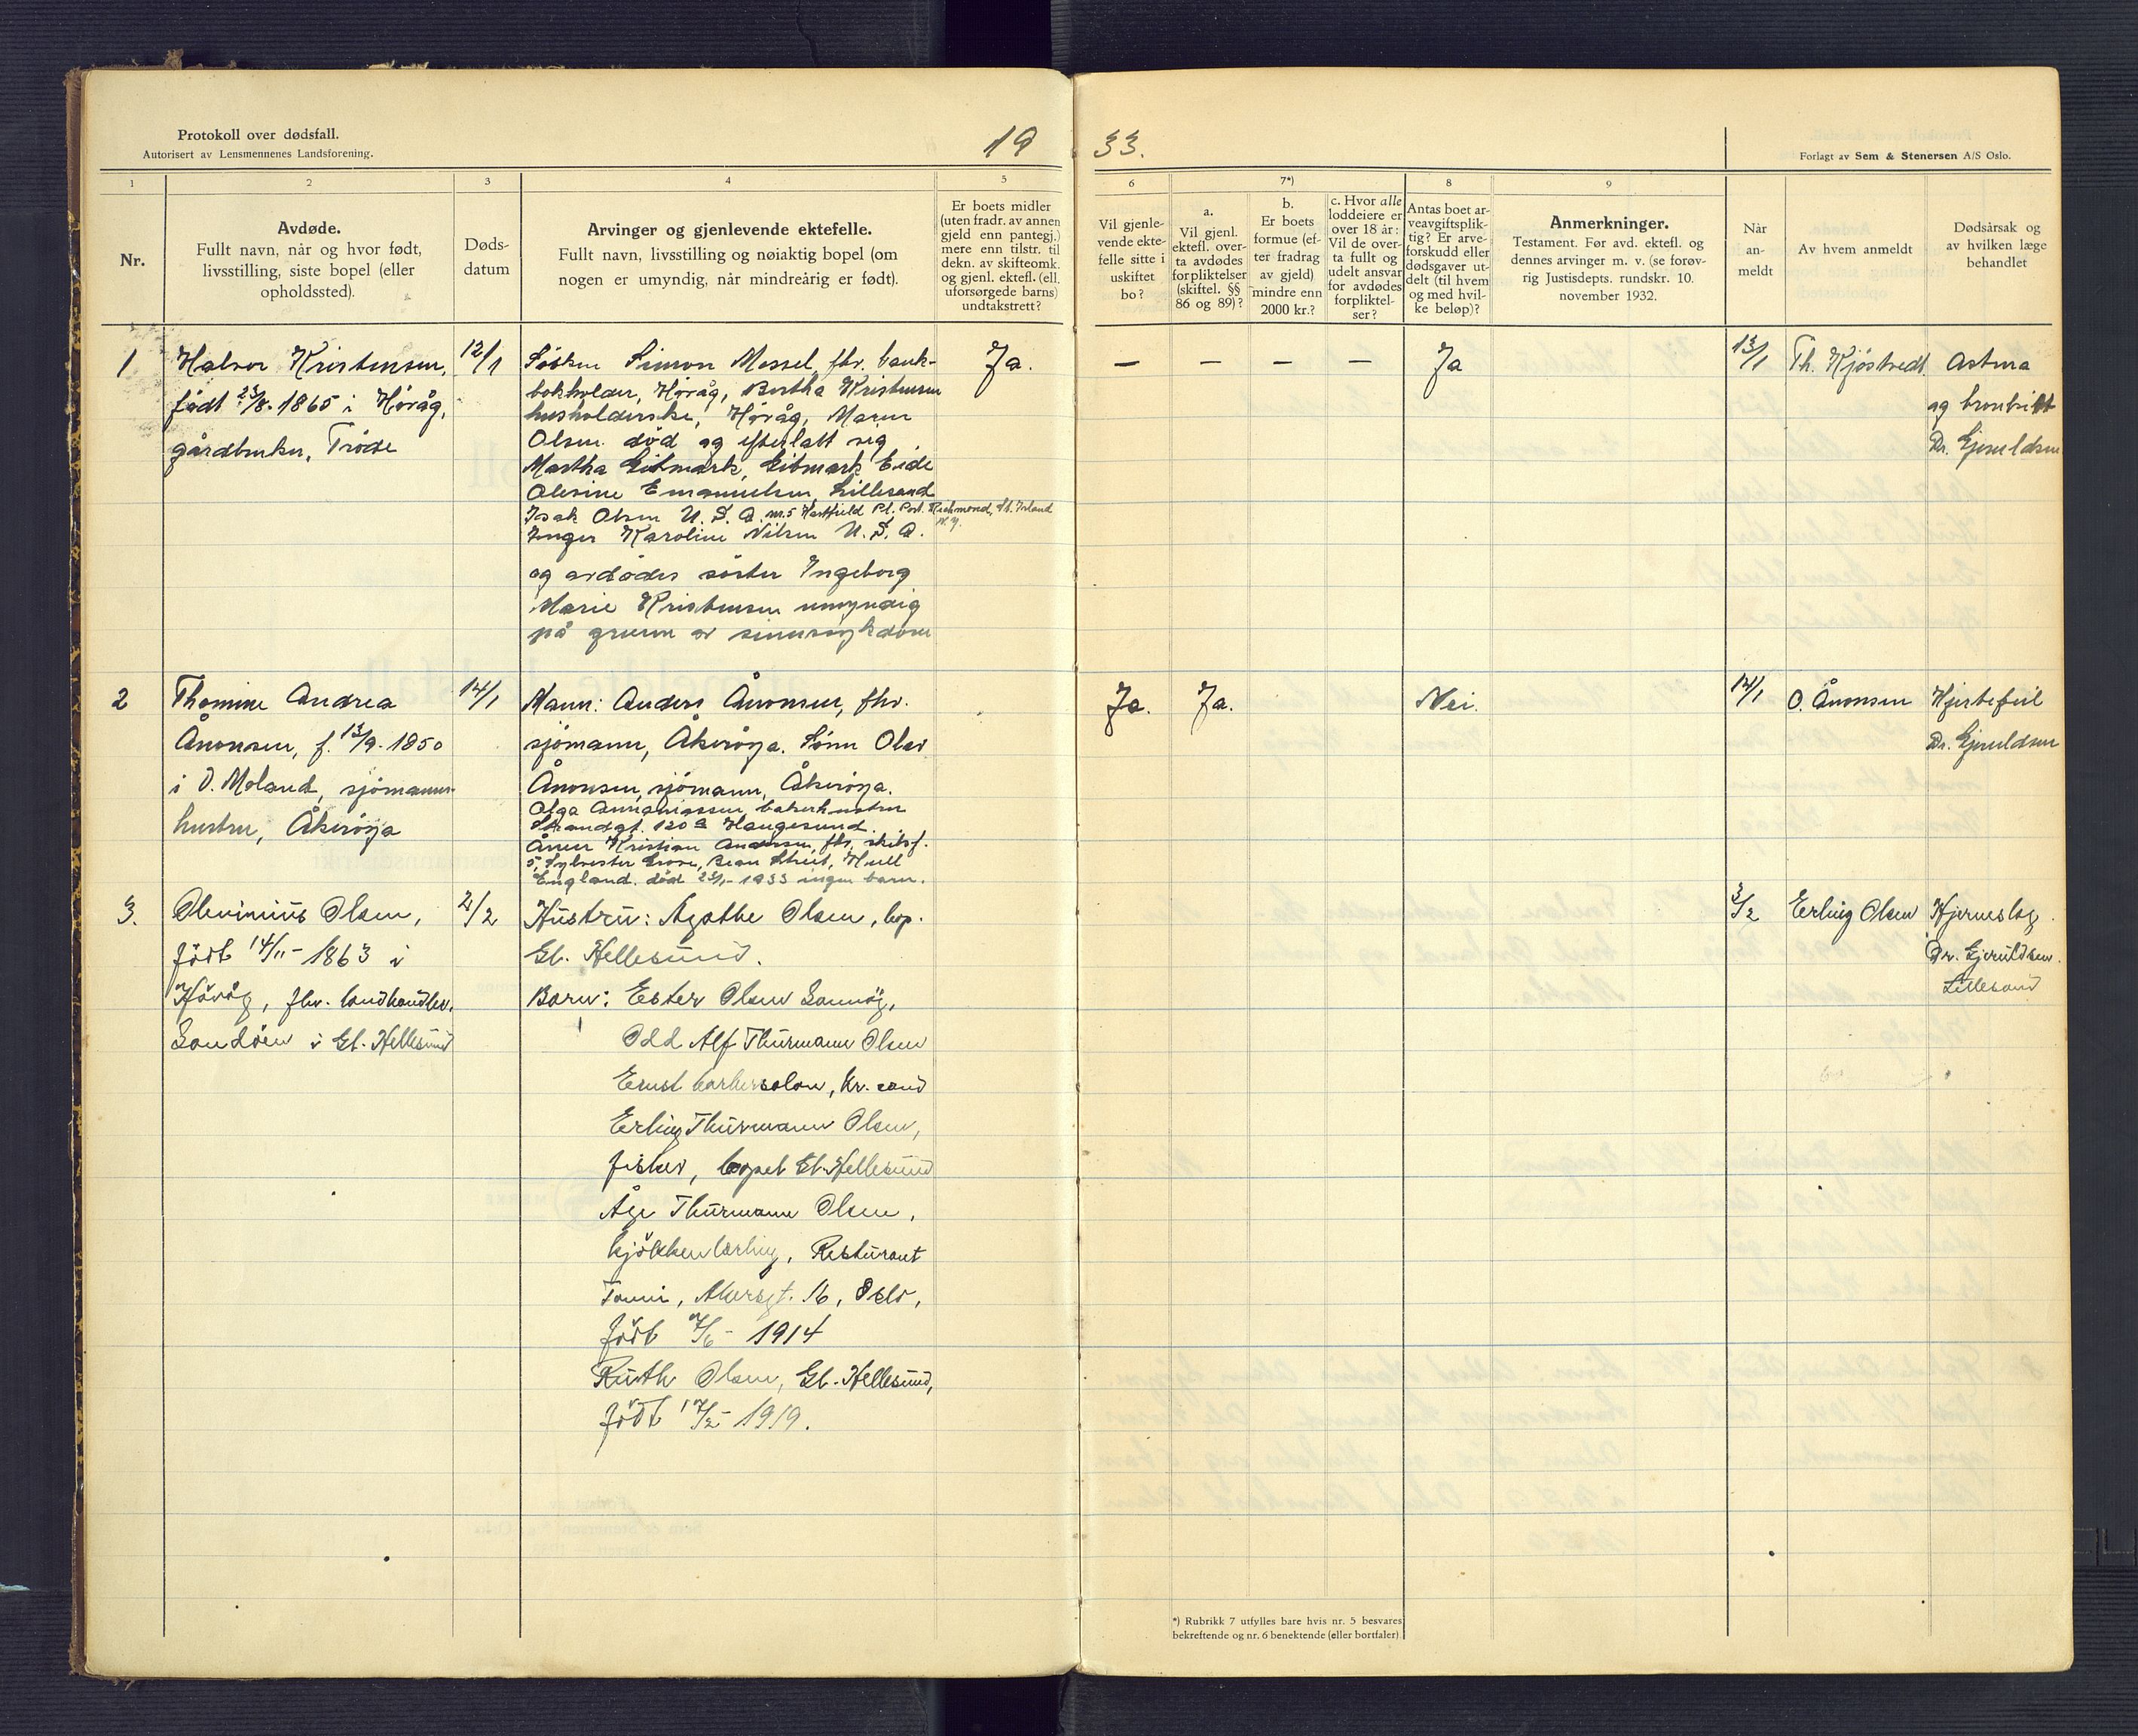 Protokoll over dødsfall.
Autorisert av Lensmennenes Landsforening.
19
33.
Forlagt av Sem & Stenersen A/S Oslo.
1
2
3
4
5
6
7*)
8
9
Nr.
Avdøde.
Fullt navn, når og hvor født,
livsstilling, siste bopel (eller
opholdssted).
Døds-
datum
Arvinger og gjenlevende ektefelle.
Fullt navn, livsstilling og nøiaktig bopel (om
nogen er umyndig, når mindreårig er født).
Er boets midler
(uten fradr. av annen
gjeld enn pantegj.)
mere enn tilstr. til
dekn. av skifteomk.
og gjenl. ektefl. (ell.
uforsørgede barns)
undtakstrett?
Vil gjenle-
vende ekte-
felle sitte i
uskiftet
bo?
a.
Vil gjenl.
ektefl. over-
ta avdødes
forpliktelser
(skiftel. §§
86 og 89)?
b.
Er boets
formue (ef-
ter fradrag
av gjeld)
mindre enn
2000 kr.?
c. Hvor alle
loddeiere er
over 18 år:
Vil de over-
ta fullt og
udelt ansvar
for avdødes
forpliktel-
ser?
Antas boet ar-
veavgiftsplik-
tig? Er arve-
forskudd eller
dødsgaver ut-
delt (til hvem
og med hvil-
ke beløp)?
Anmerkninger.
Testament. Før avd. ektefl. og
dennes arvinger m. v. (se forøv-
rig Justisdepts. rundskr. 10.
november 1932.
Når
an-
meldt
Av hvem anmeldt
Dødsårsak og
av hvilken læge
behandlet
1
Halvor Kristensen,
født 23/8-1865 i Høvåg,
gårdbruker, Trøe
12/1
Søsken Simon Messel, fhv. bank-
bokholder, Høvåg, Bertha Kristensen
husholderske, Høvåg, Maren
Olsen død og efterlatt seg
Martha Eitmark, Eitmark Eide
Olevine Emanuelsen, Lillesand
Isak Olsen U. S. A. nr. 5 Hattfield Pl. Port. Richmond, St. Island
N.Y.
Inger Karoline Nilsen U. S. A.
og avdødes søster Ingeborg
Marie Kristensen umyndig
på grunn av sinnsykdom
Ja.
— — — —
Ja
13/1
Th. Kjøstvedt.
Astma
og bronkitt
Dr. Gjeruldsen
2
Thomine Andrea
Ånonsen, f. 13/9-1850
i V. Moland, sjømanns-
hustru, Åkerøya
14/1
Mann: Anders Ånonsen, fhv.
sjømann, Åkerøya. Sønn Olav
Ånonsen, sjømann, Åkerøya.
Olga Annaniassen, bakerhustru
Strandgt. 120 a Haugesund.
Ånen Kristian Andersen, fhv. skibsf.
5, Sylvester Grove, Bean Street, Hull
England. død 23/1-1933 ingen barn.
Ja.
Ja.
Nei.
14/1
O. Ånonsen
Hjertefeil
Dr. Gjeruldsen
3.
Olenimius Olsen,
født 14/11-1863 i
Høvåg, fhv. landhandler,
Sandøen i Gl. Hellesund
2/2
Hustru: Agathe Olsen, bop.
Gl. Hellesund.
Barn: Ester Olsen Sannøy,
Odd Alf Thurmann Olsen
Ernst barbersalon, Kr.sand
Erling Thurmann Olsen,
fisker, bopel Gl. Hellesund
Åge Thurmann Olsen,
kjøkkenlærling, Resturant
Akersgt. 16, Oslo,
født 7/6-1914
Ruth Olsen, Gl. Hellesund,
født 17/2-1919.
3/2
Erling Olsen
Hjerneslag
Dr. Gjeruldsen.
Lillesand
*) Rubrikk 7 utfylles bare hvis nr. 5 besvares
bekreftende og nr. 6 benektende (eller bortfaler).